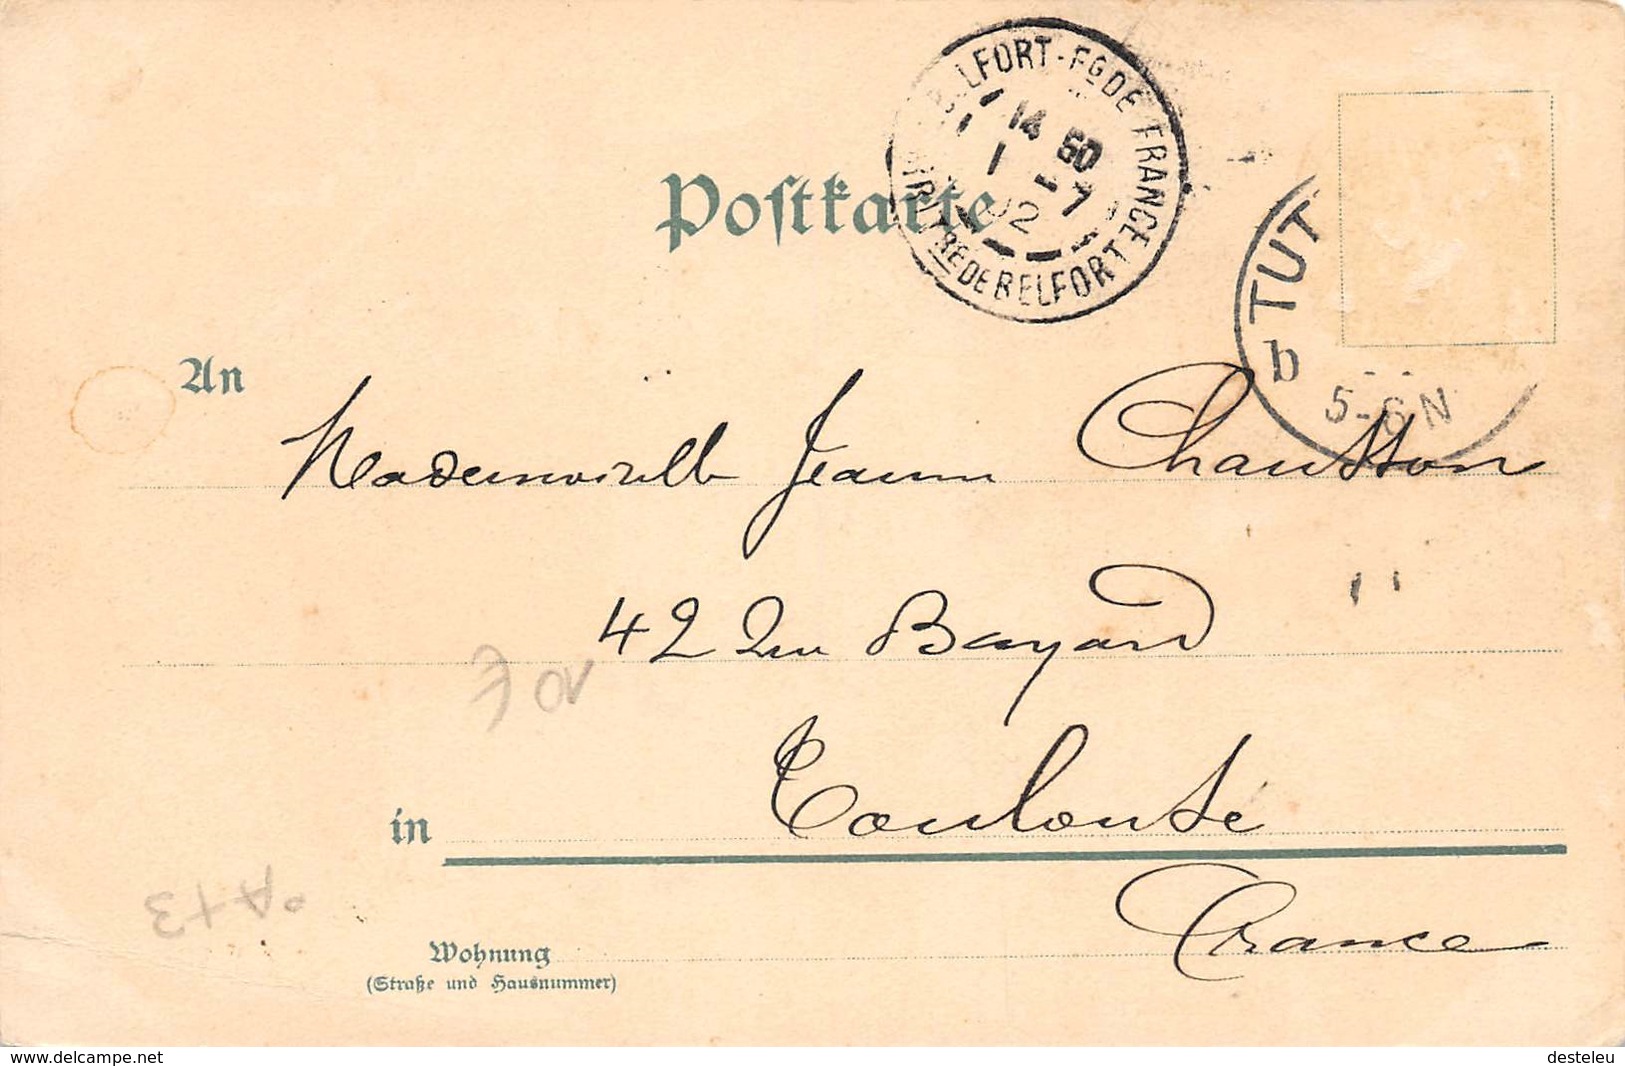 Postkarte
BELFORT-Fg DE FRANCE
14 50
1 - 7
02
TRE DE BELFORT
TUT
b
5-6 N
An
Mademoiselle Jeanne Chausson
42 Rue Bayard
in Toulouse
France
Wohnung
(Straße und Hausnummer)
www.delcampe.net
desteleu